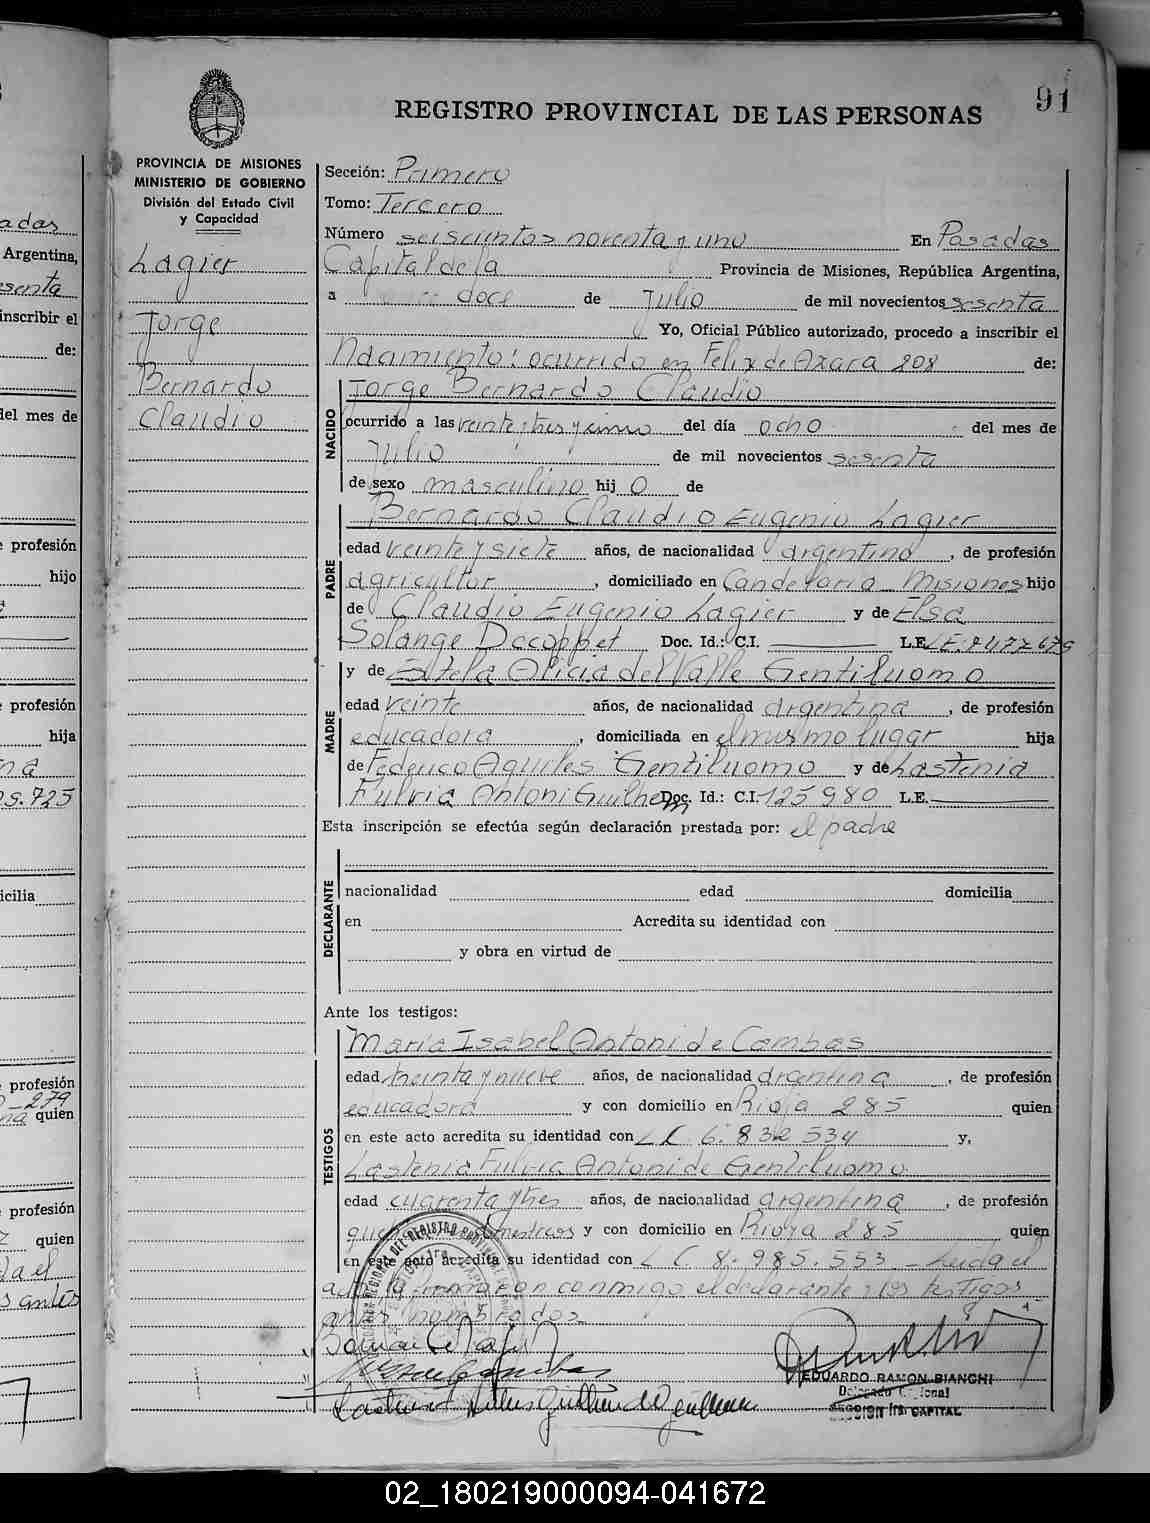 91
REGISTRO PROVINCIAL DE LAS PERSONAS
PROVINCIA DE MISIONES
MINISTERIO DE GOBIERNO
División del Estado Civil
y Capacidad
Lagier
Jorge
Bernardo
Claudio
Sección: Primero
Tomo: Tercero
Número seiscientos noventa y uno En Posadas
Capital de la Provincia de Misiones, República Argentina,
a doce de Julio de mil novecientos sesenta
Yo, Oficial Público autorizado, procedo a inscribir el
Nacimiento: ocurrido en Felix de Azara 208 de:
NACIDO
Jorge Bernardo Claudio
ocurrido a las veinte tres y del día ocho del mes de
Julio de mil novecientos sesenta
de sexo masculino hij o de
PADRE
Bernardo Claudio Eugenio Lagier
edad veinte y siete años, de nacionalidad argentino, de profesión
agricultor, domiciliado en Candelaria - Misiones hijo
de Claudio Eugenio Lagier y de Elsa
Solange Decoppet Doc. Id.: C.I. L.E. L.E. 7477679
MADRE
y de Estela Alicia del Valle Gentiluomo
edad veinte años, de nacionalidad argentina, de profesión
educadora, domiciliada en el mismo lugar hija
de Federico Aquiles Gentiluomo y de Lastenia
Fulvia Antoni Guilhem Doc. Id.: C.I. 125980 L.E.
Esta inscripción se efectúa según declaración prestada por: el padre
DECLARANTE
nacionalidad edad domicilia
en Acredita su identidad con
y obra en virtud de
Ante los testigos:
TESTIGOS
Maria Isabel Antoni de Cambas
edad treinta y nueve años, de nacionalidad argentina, de profesión
educadora y con domicilio en Rioja 285 quien
en este acto acredita su identidad con L C 6.832 534 y,
Lastenia Fulvia Antoni de Gentiluomo
edad cuarenta y tres años, de nacionalidad argentina, de profesión
y con domicilio en Rioja 285 quien
en este acto acredita su identidad con L C 8.985.553 - Leida el
acta la firmaron conmigo el declarante y los testigos
antes nombrados
EDUARDO RAMON BIANCHI
SECCION 1ra. CAPITAL
02_180219000094-041672